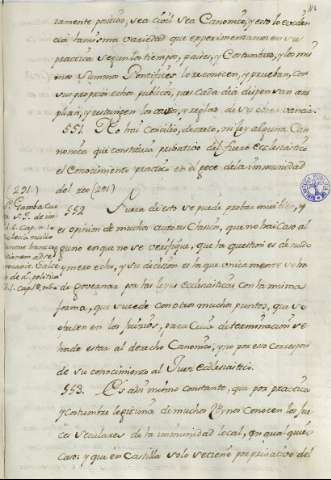 ramente positivo, sea Civil, sea Canonico, y esto lo eviden
cia la misma variedad que experimentamos en su
practica segun los tiempos, paises, y Costumbres, y los mis
mos Sumos Pontifices lo reconocen, y prueban, con
sus propios echos publicos, pues cada dia dispensan am
plian, y restringen los casos, y reglas de su observancia.
551. No hai Concilio, decreto, ni ley alguna Ca
nonica que constituia privativo del fuero Ecclesiastico
el Conocimiento practico en el goce de la inmunidad
del reo (291)
(291.)
552. Fuera de esto se puede probar mui bien, y
es opinion de muchos autores Clasicos, que no hai Caso al
guno en que no se verifique, que la question es de nudo
y mero echo, y su decision es la que unicamente se ha
de governar por las leyes Ecclesiasticas con la misma
forma, que sucede con otros muchos puntos, que se
ofrecen en los Juicios, para cuia determinacion se
ha de estar al derecho Canonico, y no por eso corresponde
su conocimiento al Juez Ecclesiastico.
553. Es asi mismo constante, que por practica
y costumbre legitima de muchos Reynos conocen los Jue
ces seculares de la inmunidad local, en qualquier
caso; y que en Castilla solo se tiene por privativo del